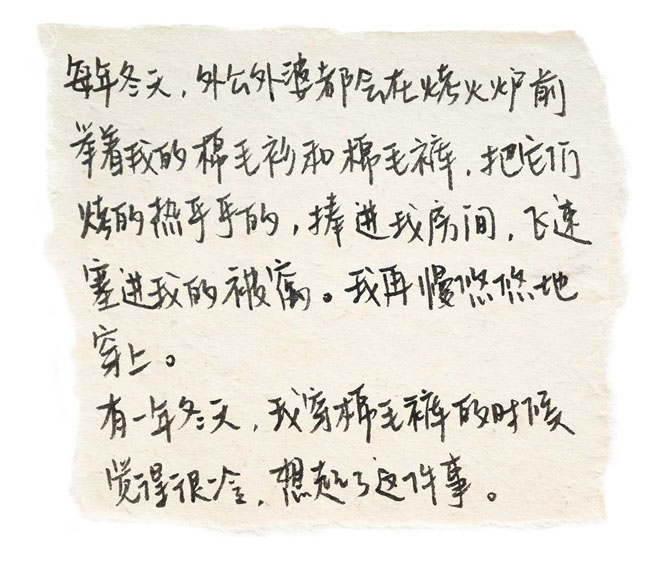 每年冬天，外公外婆都会在烧火炉前
举着我的棉毛衫和棉毛裤，把它们
烤的热乎乎的，捧进我房间，飞速
塞进我的被窝。我再慢悠悠地
穿上。
有一年冬天，我穿棉毛裤的时候
觉得很冷，想起了这件事。